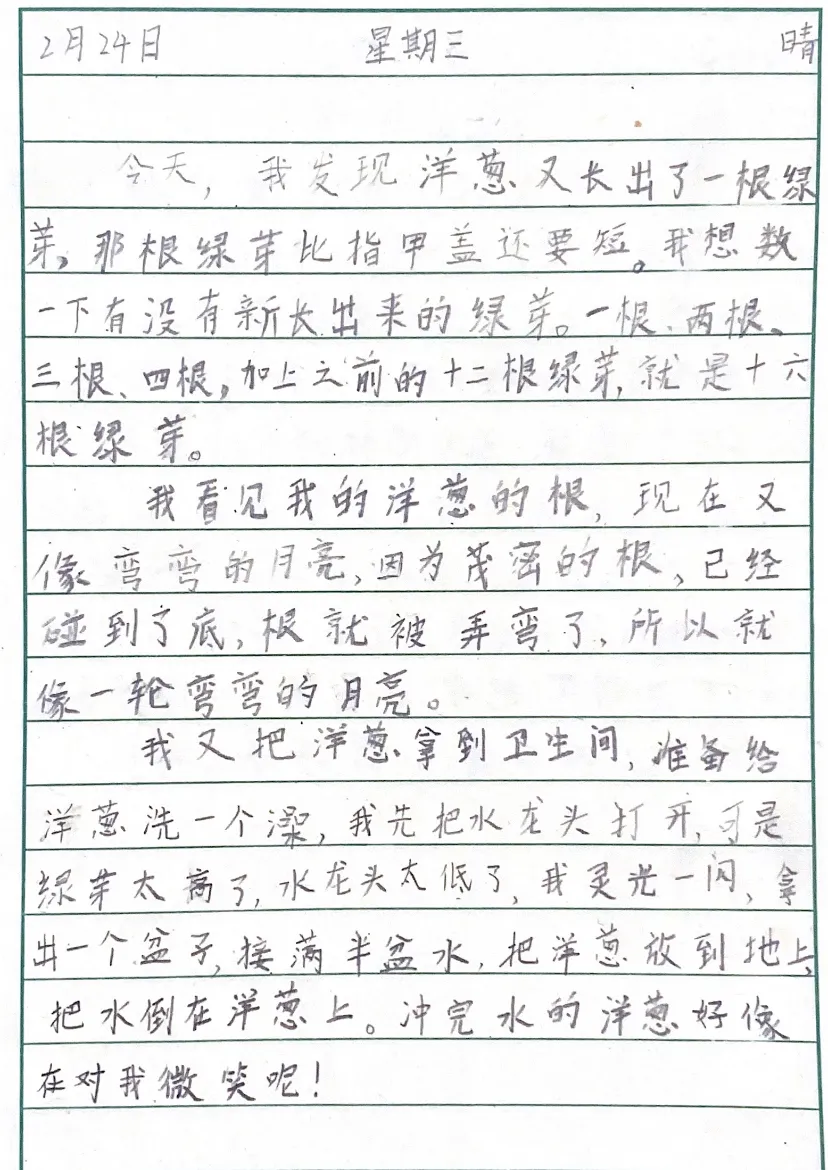 2月24日 星期三 晴
今天，我发现洋葱又长出了一根绿
芽，那根绿芽比指甲盖还要短。我想数
一下有没有新长出来的绿芽。一根、两根、
三根、四根，加上之前的十二根绿芽，就是十六
根绿芽。
我看见我的洋葱的根，现在又
像弯弯的月亮，因为茂密的根，已经
碰到了底，根就被弄弯了，所以就
像一轮弯弯的月亮。
我又把洋葱拿到卫生间，准备给
洋葱洗一个澡，我先把水龙头打开，可是
绿芽太高了，水龙头太低了，我灵光一闪，拿
出一个盆子，接满半盆水，把洋葱放到地上，
把水倒在洋葱上。冲完水的洋葱好像
在对我微笑呢！